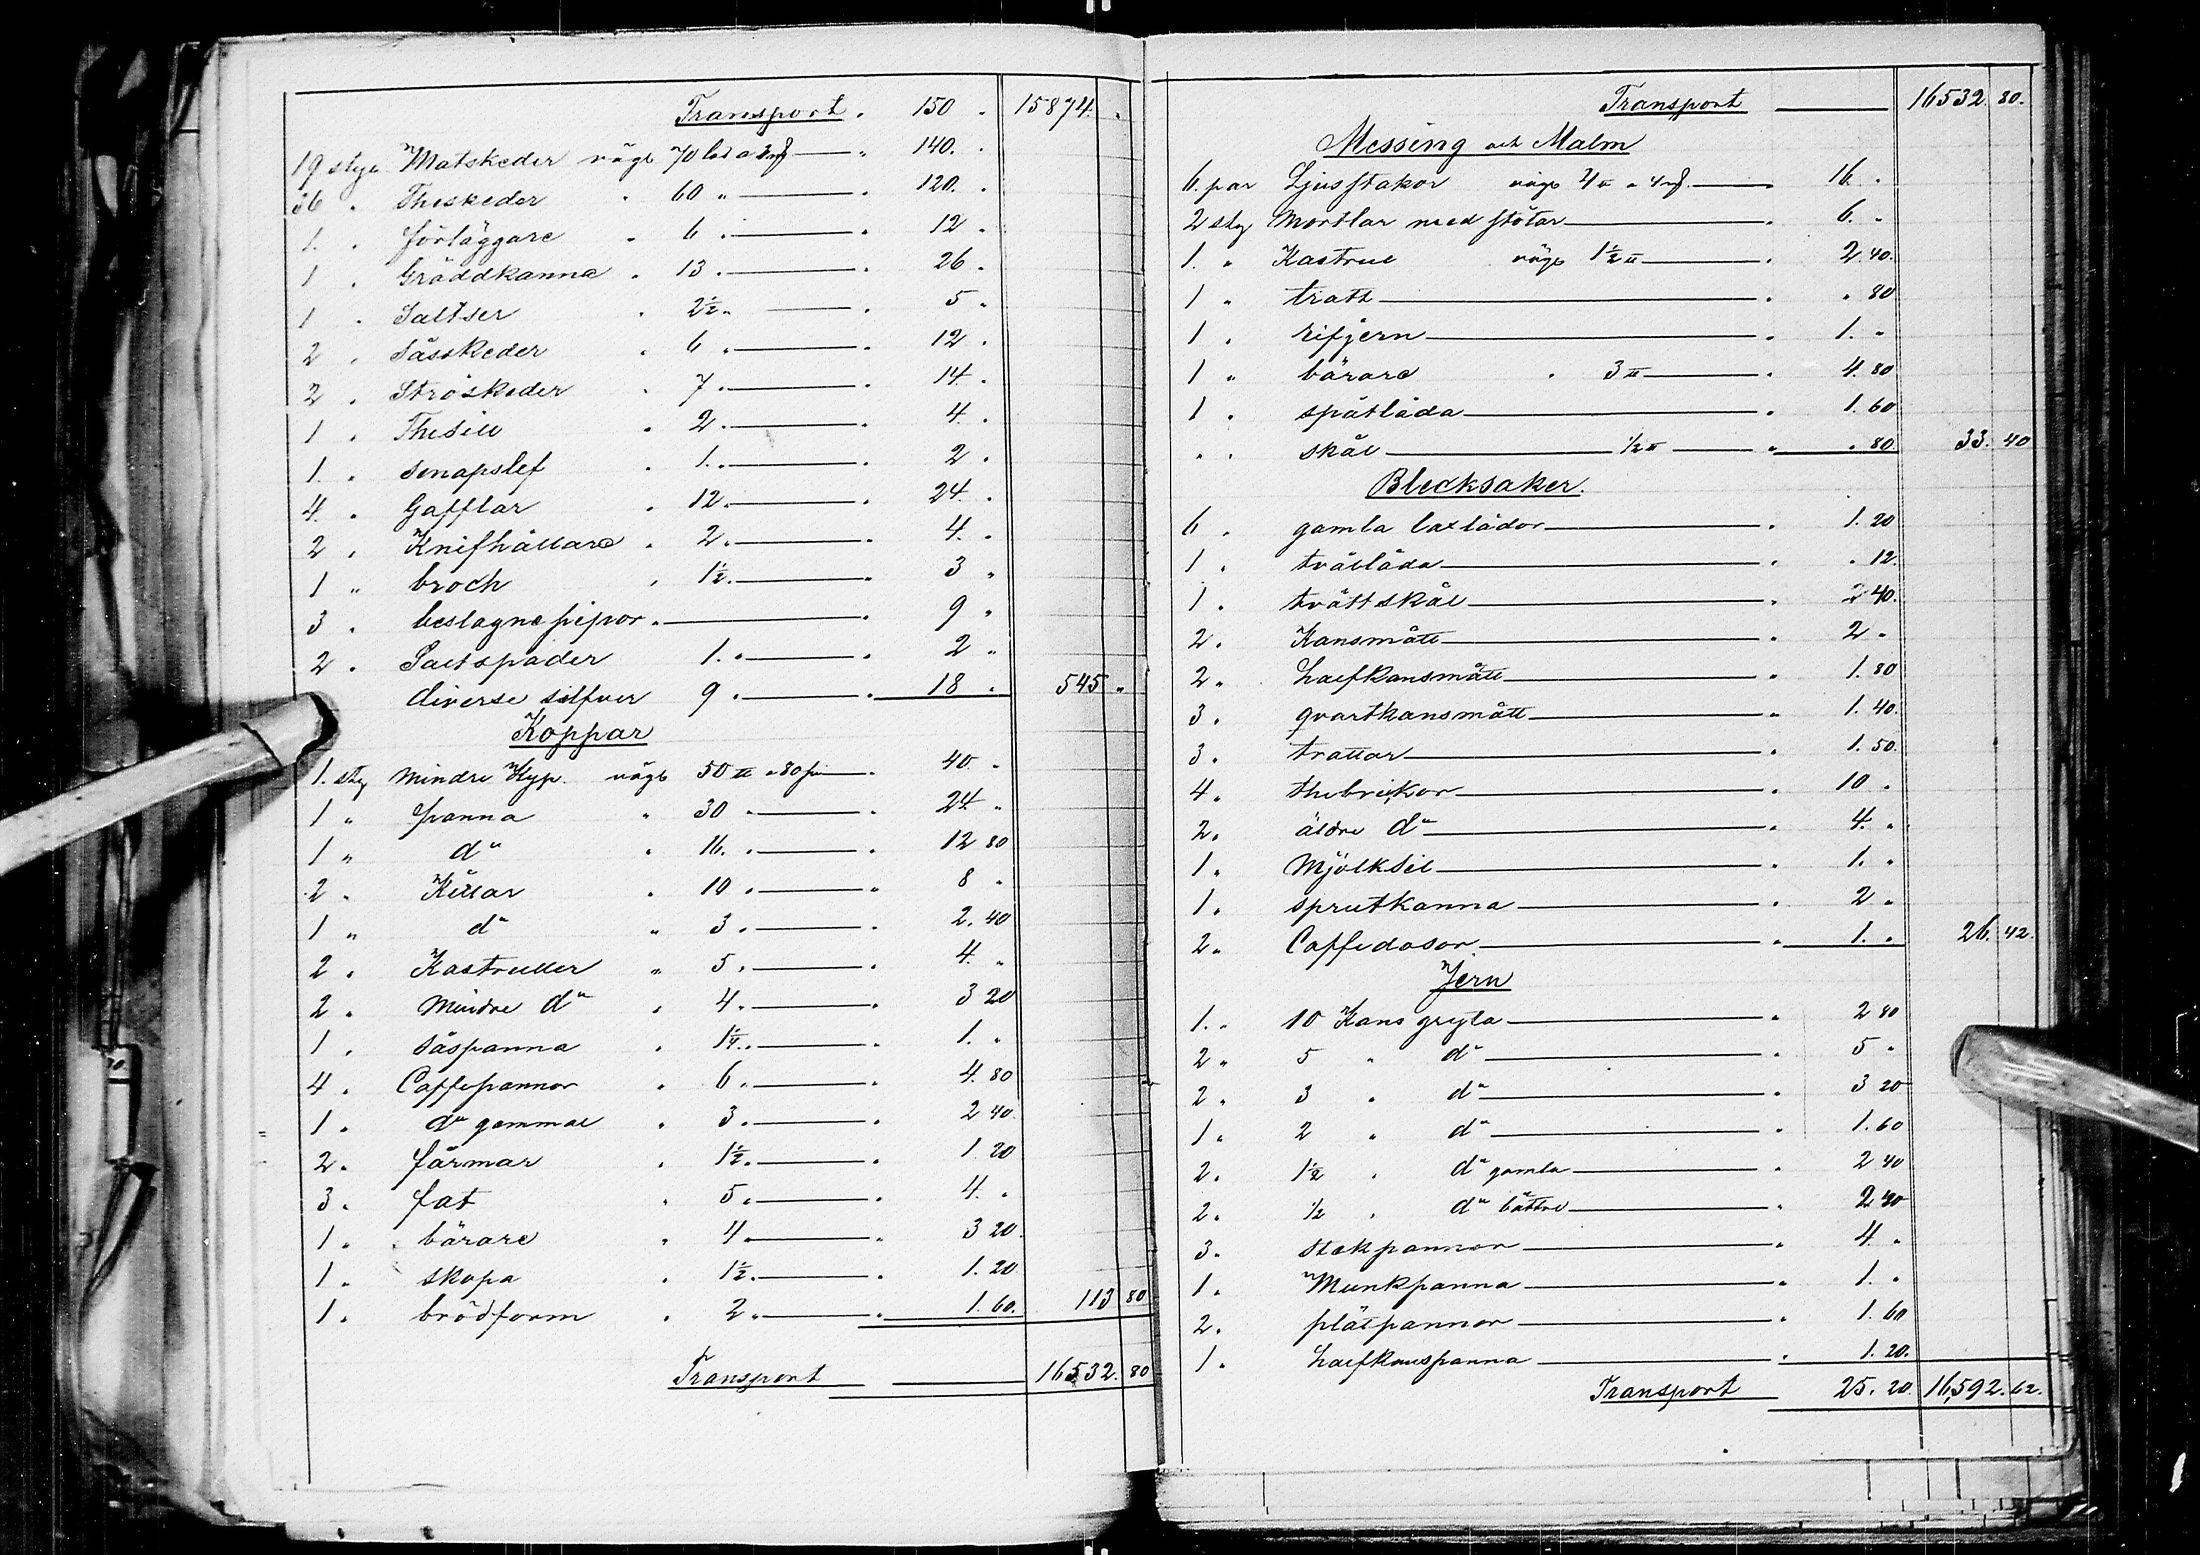 Transport . 150 . 15874. .
19 styn Matskeder vägt 70 lod a 2 mf — " 140. .
36 . Theskeder . 60 " — . 120. .
1. . förläggare . 6 . — . 12 .
1 . Gräddkanna . 13 . — . 26 .
1 . Saltser . 2½ " — . 5 .
2 . Såsskeder . 6 . — . 12 .
2 . Ströskeder . 7 . — . 14. .
1 . Thesill . 2 . — . 4. .
1. . senapslef . 1. . — . 2 .
4. . Gafflar . 12 . — . 24. .
2 . Knifhållare . 2 . — . 4. .
1 " broch . 1½ . — . 3 "
3 . beslagne pipor . — . 9 "
2 . Saltspader 1. . — . 2 "
diverse silfver 9 . — . 18 . 545 "
Koppar
1. sty mindre Kyp. vägt 50 ℔ a 80 — . 40 .
1 " panna " 30 . — . 24. .
1 " do . 16. . — . 12 80
2 . Kittlar . 10 . — . 8 .
1 " do " 3 . — . 2. 40
2 . Kastruller " 5 . — . 4. .
2 . Mindre do . 4 . — . 3 20
1 . såspanna . 1¼ . — . 1. .
4 . Caffepannor . 6 . — . 4. 80
1 . do gammal . 3 . — . 2 40.
2 . färmar . 1½ . — . 1 20
3 . fat . 5 . — . 4. .
1 . bärare . 4 . — . 3 20.
1 . skopa . 1½ . — . 1. 20
1 . brödform . 2 . — . 1. 60. 113 80
Transport — 16532. 80
Transport — 16532. 80.
Messing och Malm
6. par Ljusstakar vägt 4 ℔ a 4 mf. — . 16. .
2 sty Mortlar med stötar — . 6. .
1. " Kastrul vägt 1½ ℔ — . 2. 40.
1 " tratt — . . 80
1 . rifjern — . 1. .
1 " bärare . 3 ℔ — . 4. 80
1 . spåtlåda — . 1. 60
. . skål — ½ ℔ — . . 80. 33. 40
Blecksaker.
6 . gamla laxlådor — . 1. 20
1 . tvållåda — . . 12.
1 . tvättskål — . 2 40.
2 . Kansmått — . 2 .
2 . halfkansmått — . 1. 80
3 . qvartkansmått — . 1. 40.
3 . trattar — . 1. 50.
4 . thebrickor — . 10 .
2 . äldre do — . 4. .
1 . Mjölksil — . 1. .
1 . sprutkanna — . 2 .
2 . Caffedosor — . 1. . 26. 42.
Jern
1. . 10 Kans gryta — . 2 80
2 . 5 . do — . 5 .
2 . 3 . do — . 3 20
1 . 2 . do — . 1. 60
2 . 1½ . do gamla — . 2 40
2 . ½ . do bättre — . 2 40
3 . Stekpannor — . 4. .
1 . Munkpanna — . 1. .
2 . plätpannor — . 1. 60
1 . halfkanspanna — . 1. 20.
Transport — 25. 20. 16,592. 62.